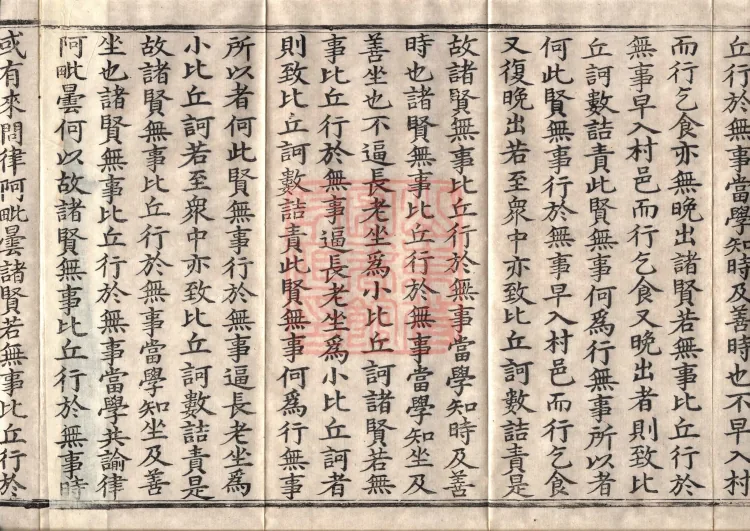 丘行於無事當學知時及善時也不早入村
而行乞食亦無晚出諸賢若無事比丘行於
無事早入村邑而行乞食又晚出者則致比
丘訶數詰責此賢無事何爲行無事所以者
何此賢無事行於無事早入村邑而行乞食
又復晚出若至衆中亦致比丘訶數詰責是
故諸賢無事比丘行於無事當學知時及善
時也諸賢無事比丘行於無事當學知坐及
善坐也不逼長老坐爲小比丘訶諸賢若無
事比丘行於無事逼長老坐爲小比丘訶者
則致比丘訶數詰責此賢無事何爲行無事
所以者何此賢無事行於無事逼長老坐爲
小比丘訶若至衆中亦致比丘訶數詰責是
故諸賢無事比丘行於無事當學知坐及善
坐也諸賢無事比丘行於無事當學共論律
阿毗曇何以故諸賢無事比丘行於無事時
或有來問律阿毗曇諸賢若無事比丘行於